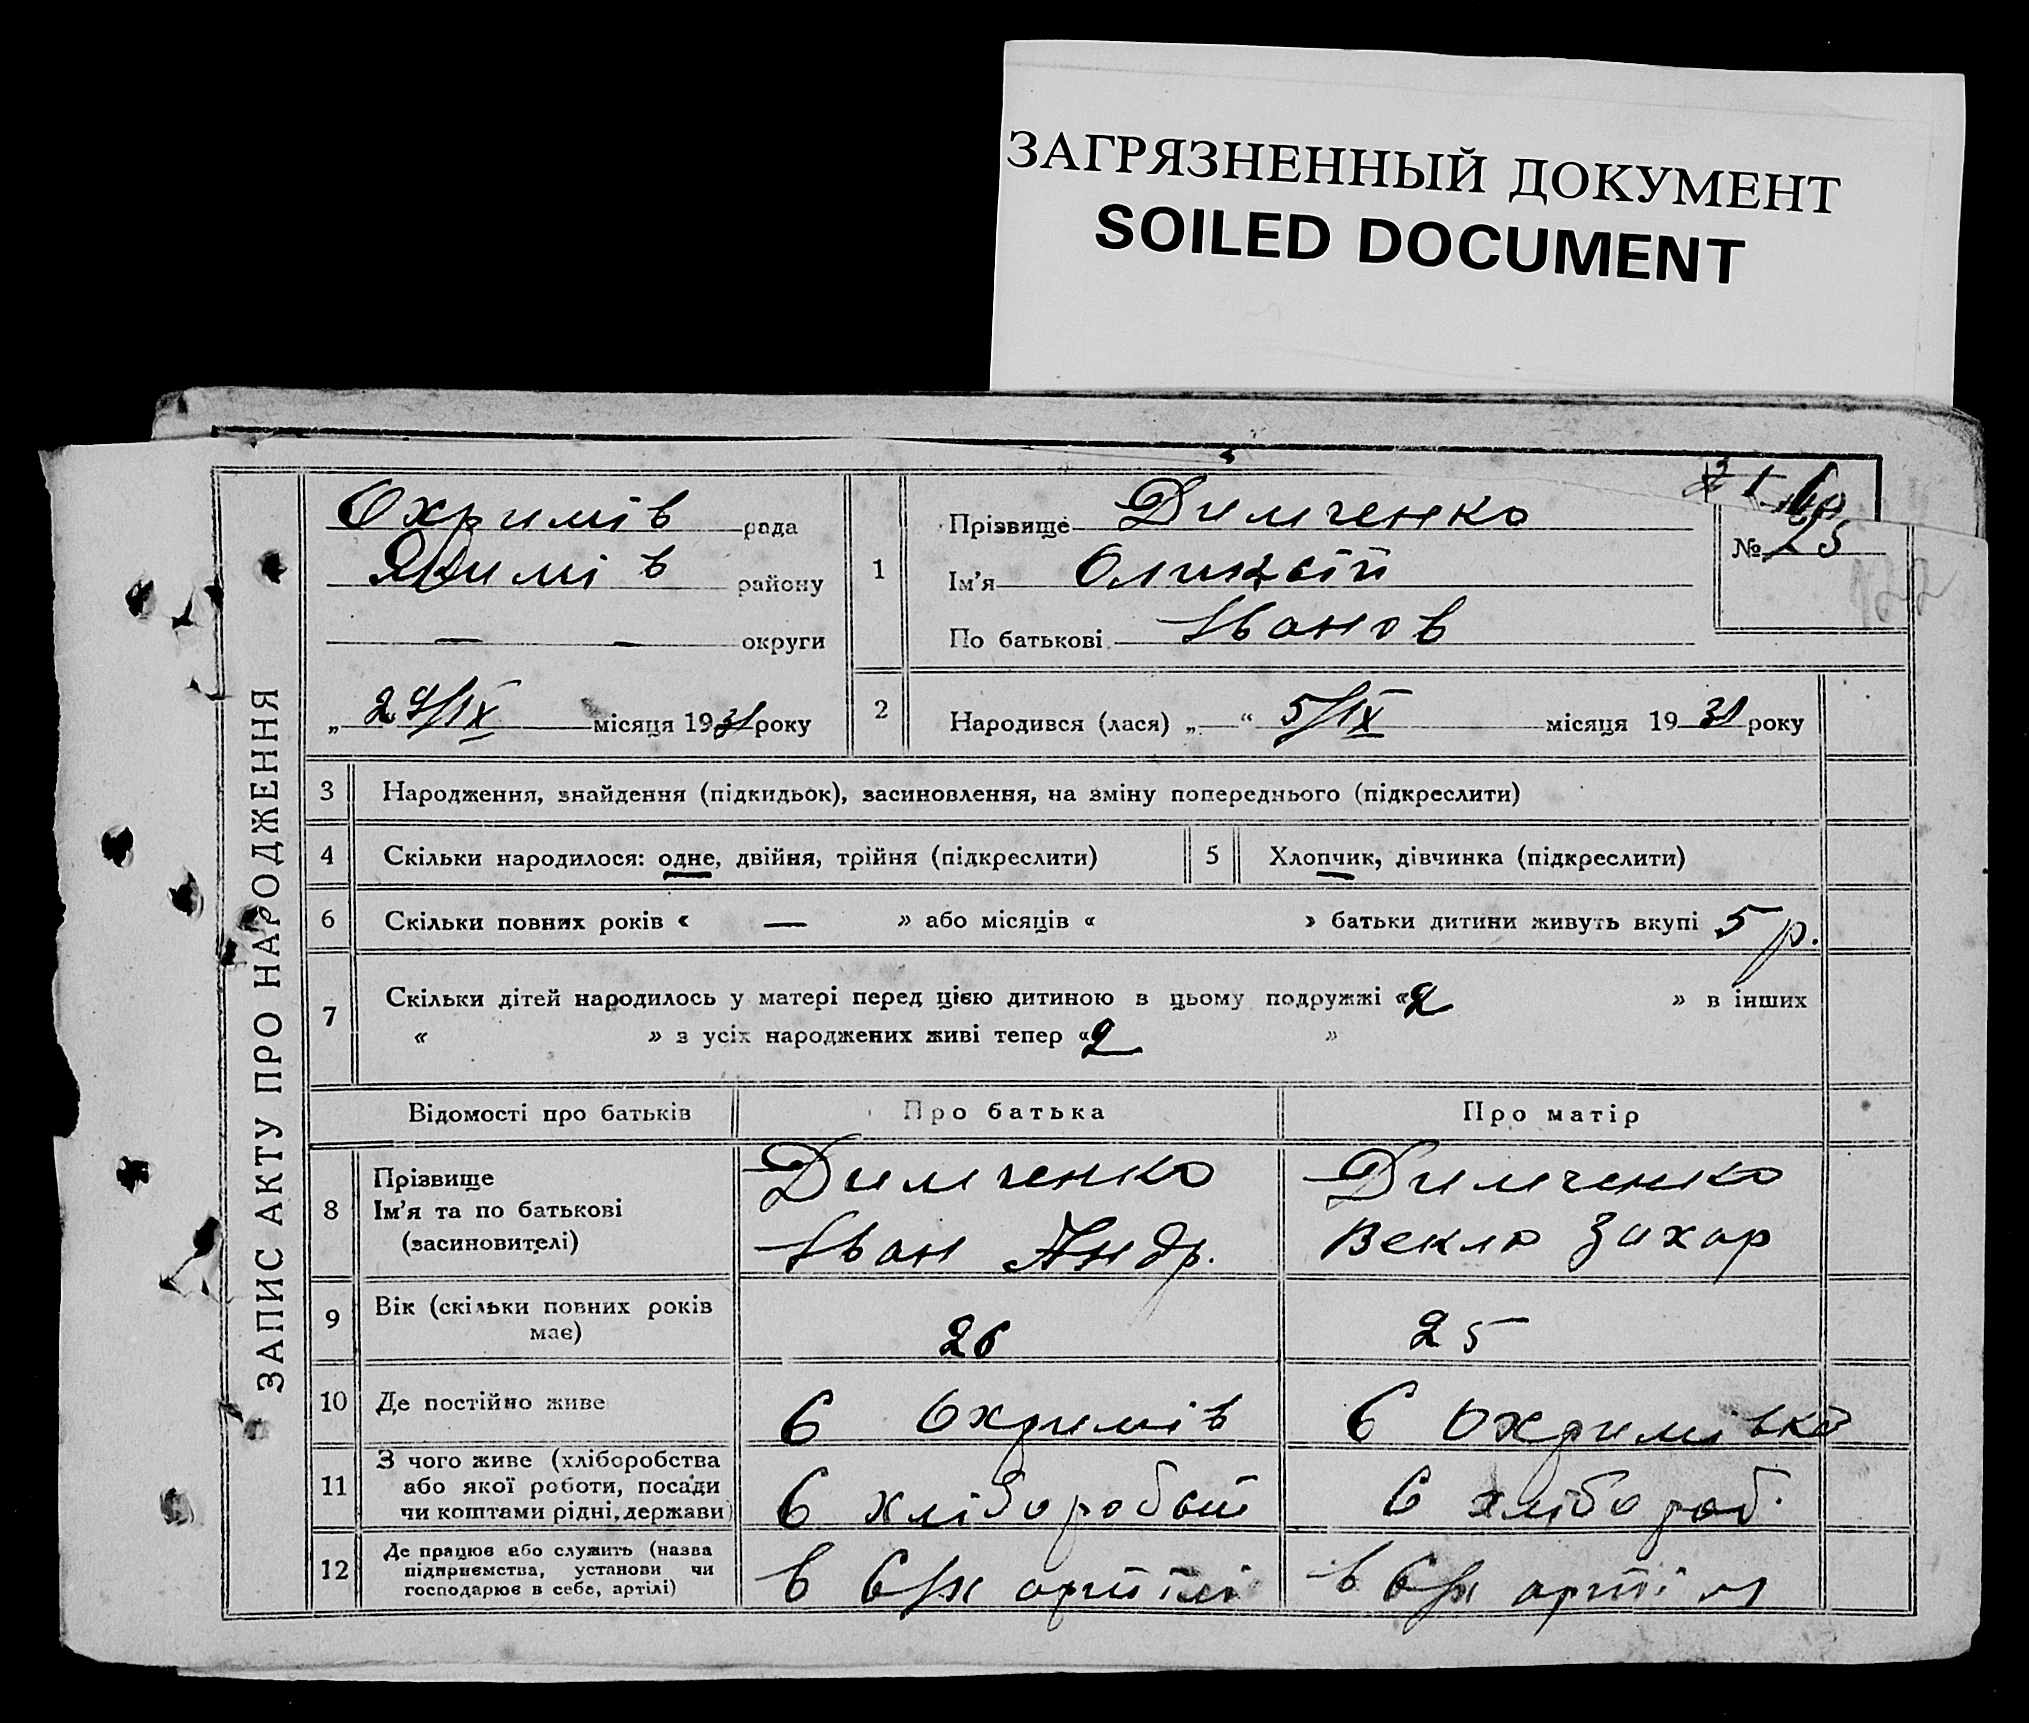 ЗАГРЯЗНЕННЫЙ ДОКУМЕНТ
SOILED DOCUMENT
ЗАПИС АКТУ ПРО НАРОДЖЕННЯ
Охримів рада
Якимів району
— — округи
„ 29/IX місяця 1931 року
1
Прізвище Димченко
Ім’я Оликсій
По батькові Іванов
№ 25
2 Народився (лася) „—“ 5/IX місяця 1931 року
3 Народження, знайдення (підкидьок), засиновлення, на зміну попереднього (підкреслити)
4 Скільки народилося: одне, двійня, трійня (підкреслити) 5 Хлопчик, дівчинка (підкреслити)
6 Скільки повних років « — » або місяців « » батьки дитини живуть вкупі 5 р.
7 Скільки дітей народилось у матері перед цією дитиною в цьому подружжі «2 » в інших
« » з усіх народжених живі тепер «2 »
Відомості про батьків Про батька Про матір
8 Прізвище Димченко Димченко
Ім’я та по батькові Іван Андр. Векла Захар
(засиновителі)
9 Вік (скільки повних років має) 26 25
10 Де постійно живе С Охримів С Охримівка
11 З чого живе (хліборобства
або якої роботи, посади
чи коштами рідні, держави)
С хліборобст С хлібороб.
12 Де працює або служить (назва
підприємства, установи чи
господарює в себе, артілі)
в с/г артілі в с/г артіл